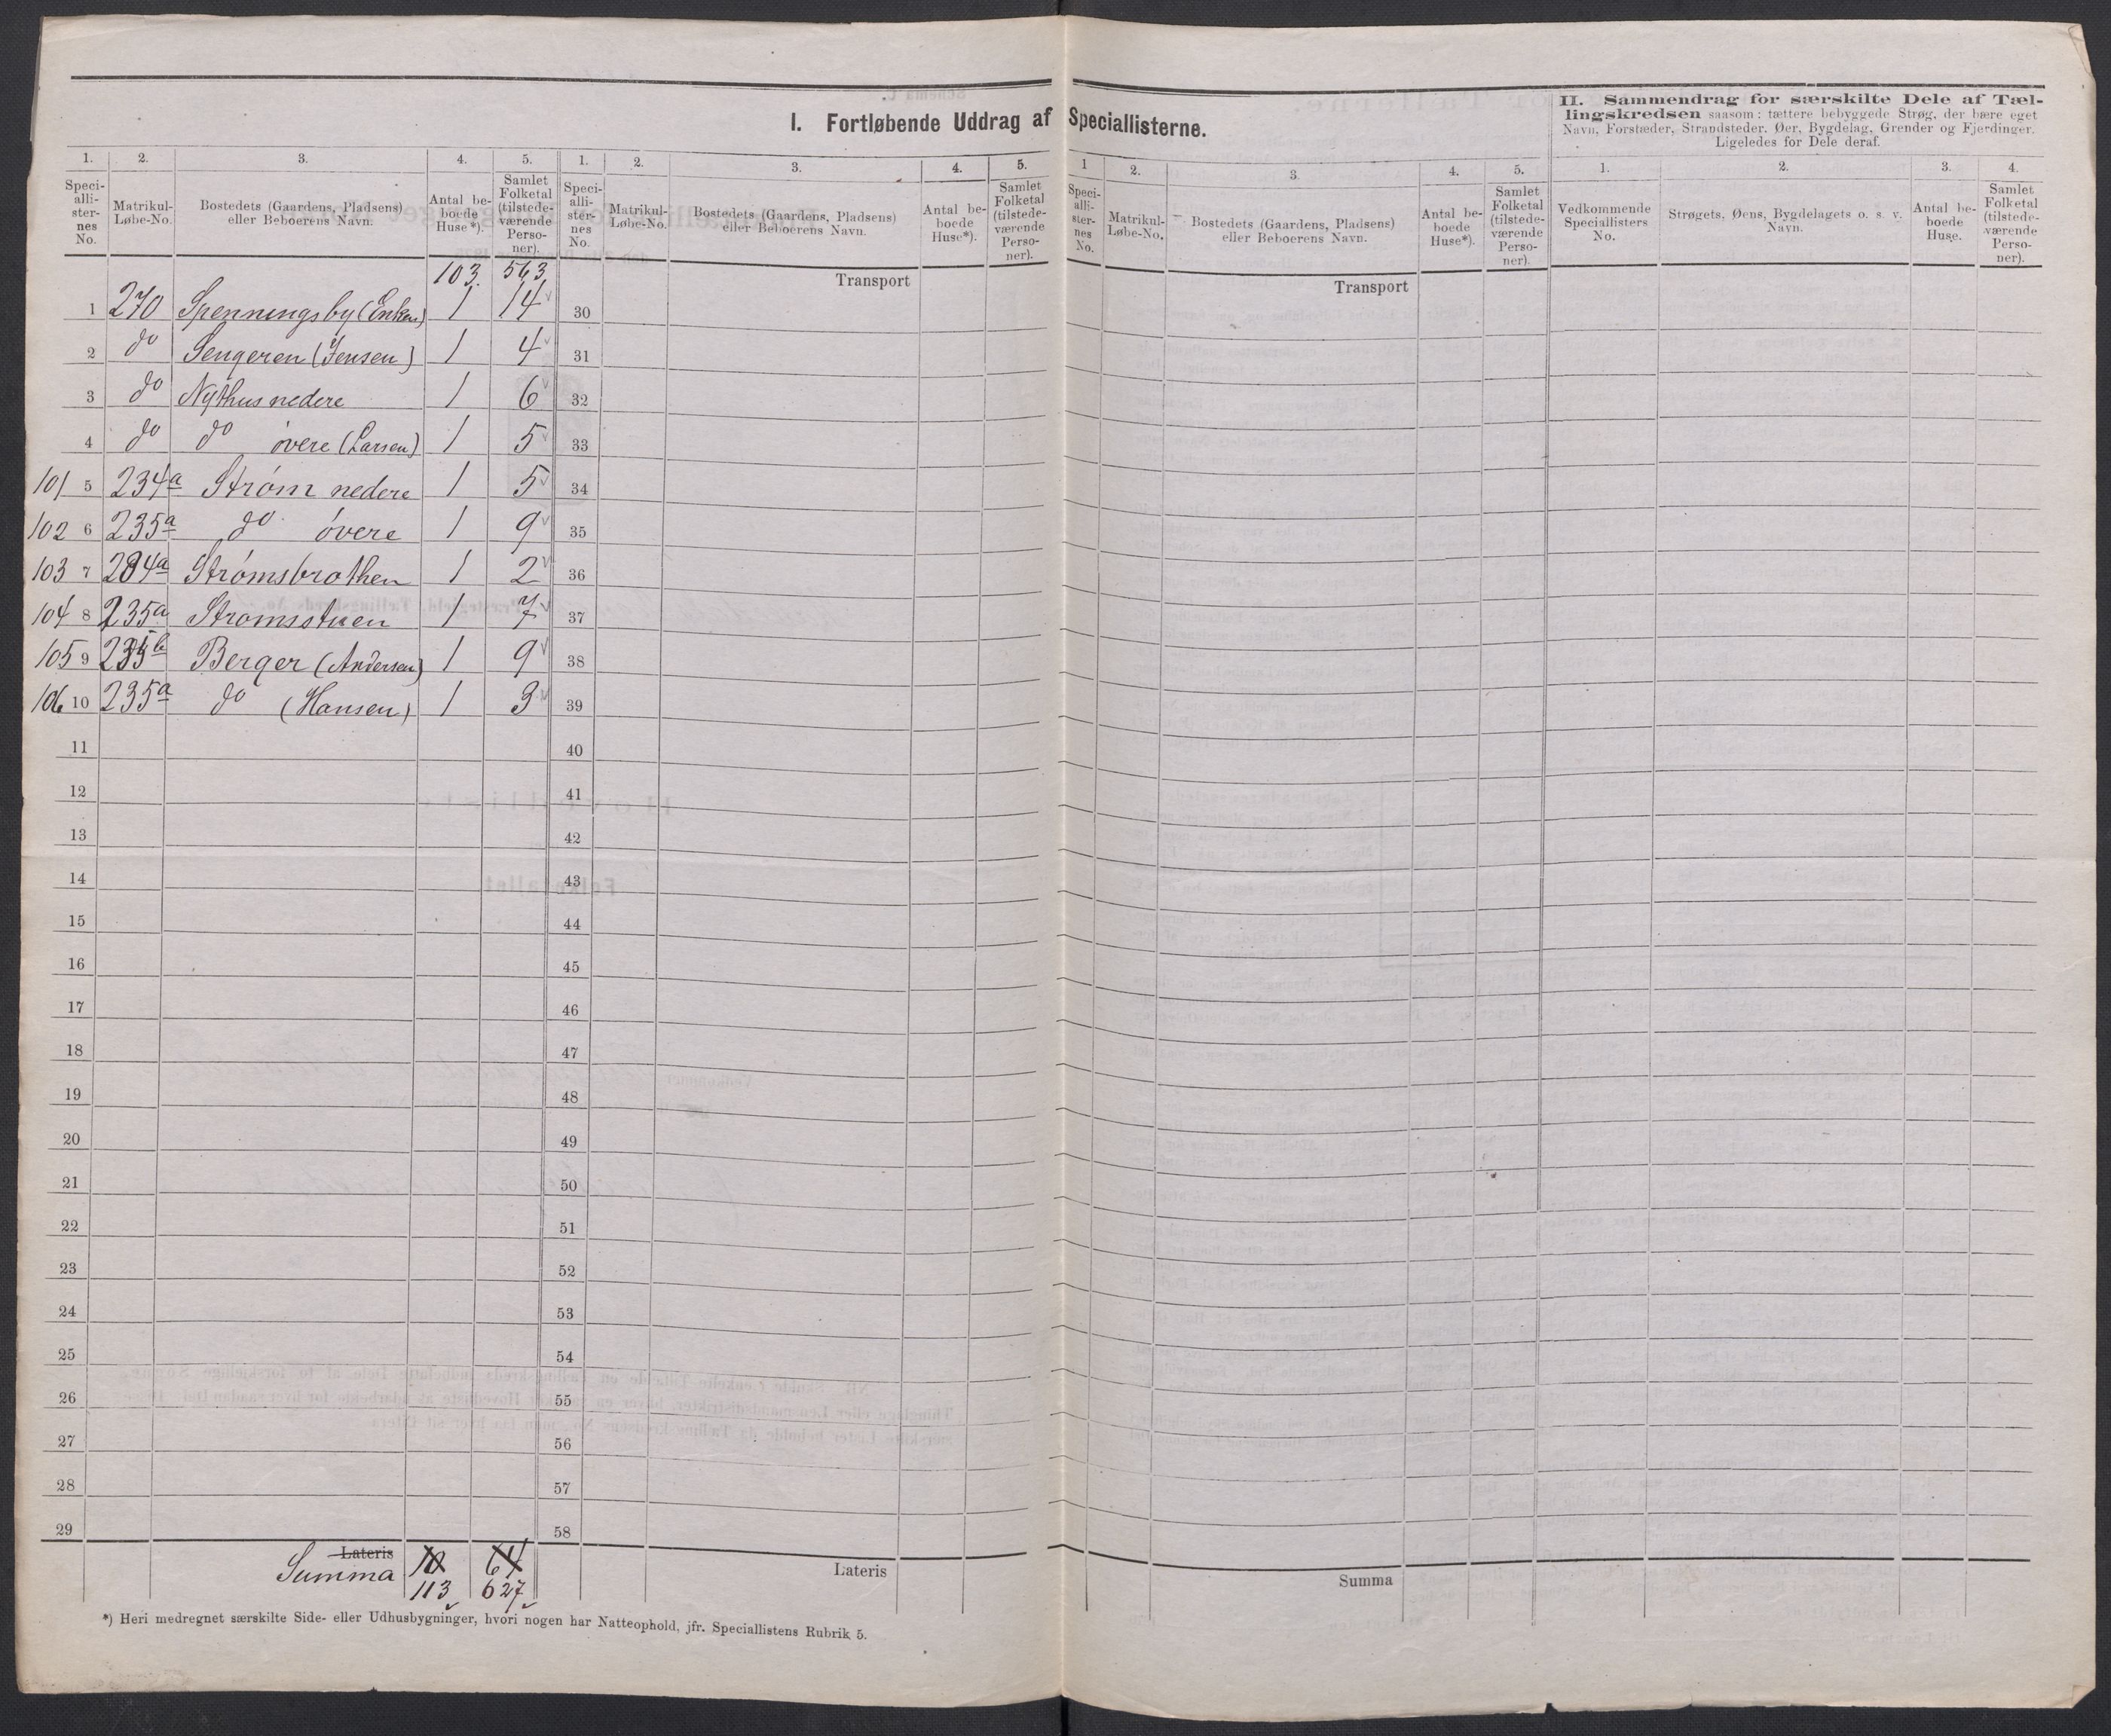 I. Fortløbende Uddrag af Speciallisterne.
1. 2. 3. 4. 5.
Speci-alli-ster-nes No. Matrikul-Løbe-No. Bostedets (Gaardens, Pladsens) eller Beboerens Navn. Antal be-boede Huse*). Samlet Folketal (tilstede-værende Perso-ner).
103. 563
1 270 Spenningsby (Enken) 1 14
2 do Sengeren (Jensen) 1 4
3 do Nythus nedere 1 6
4 do do øvere (Larsen) 1 5
101 5 234a Strøm nedere 1 5
102 6 235a do øvere 1 9
103 7 234a Strømsbrothen 1 2
104 8 235a Strømsstuen 1 7
105 9 235b Berger (Andersen) 1 9
106 10 235a do (Hansen) 1 3
11
12
13
14
15
16
17
18
19
20
21
22
23
24
25
26
27
28
29
Lateris 10 64
Summa 113 627
*) Heri medregnet særskilte Side- eller Udhusbygninger, hvori nogen har Natteophold, jfr. Speciallistens Rubrik 5.
1. 2. 3. 4. 5.
Speci-alli-ster-nes No. Matrikul-Løbe-No. Bostedets (Gaardens, Pladsens) eller Beboerens Navn. Antal be-boede Huse*). Samlet Folketal (tilstede-værende Perso-ner).
Transport
30
31
32
33
34
35
36
37
38
39
40
41
42
43
44
45
46
47
48
49
50
51
52
53
54
55
56
57
58
Lateris
1 2. 3. 4. 5.
Speci-alli-ster-nes No. Matrikul-Løbe-No. Bostedets (Gaardens, Pladsens) eller Beboerens Navn. Antal be-boede Huse*). Samlet Folketal (tilstede-værende Perso-ner).
Transport
Summa
II. Sammendrag for særskilte Dele af Tæl-
lingskredsen saasom: tættere bebyggede Strøg, der bære eget
Navn, Forstæder, Strandsteder, Øer, Bygdelag, Grender og Fjerdinger.
Ligeledes for Dele deraf.
1. 2. 3. 4.
Vedkommende Speciallisters No. Strøgets, Øens, Bygdelagets o. s. v. Navn. Antal be-boede Huse. Samlet Folketal (tilstede-værende Perso-ner).